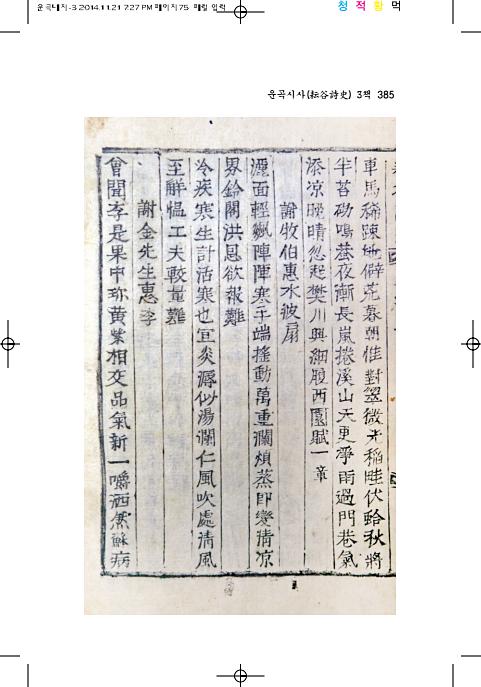 운곡대지-3 2014.11.21 7:27 PM 페이지75 매릴 입력
청 적 황 먹
운곡시사(耘谷詩史) 3책 385
車馬稀踈地僻荒暮朝惟對翠微光稻畦伏蛤秋將
半苔砌鳴蛩夜漸長嵐捲溪山天更淨雨過門巷氣
添凉晚晴忽起樊川興細履西園賦一章
謝牧伯惠水波扇
灑面輕飆陣陣寒手端搖動萬重瀾煩蒸即變清凉
界鈴閣洪恩欲報難
冷疾寒生計活寒也宜炎溽似湯瀾仁風吹處清風
至解慍工夫較量難
謝金先生惠李
曾聞李是果中珎黃紫相交品氣新一嚼洒然蘇病